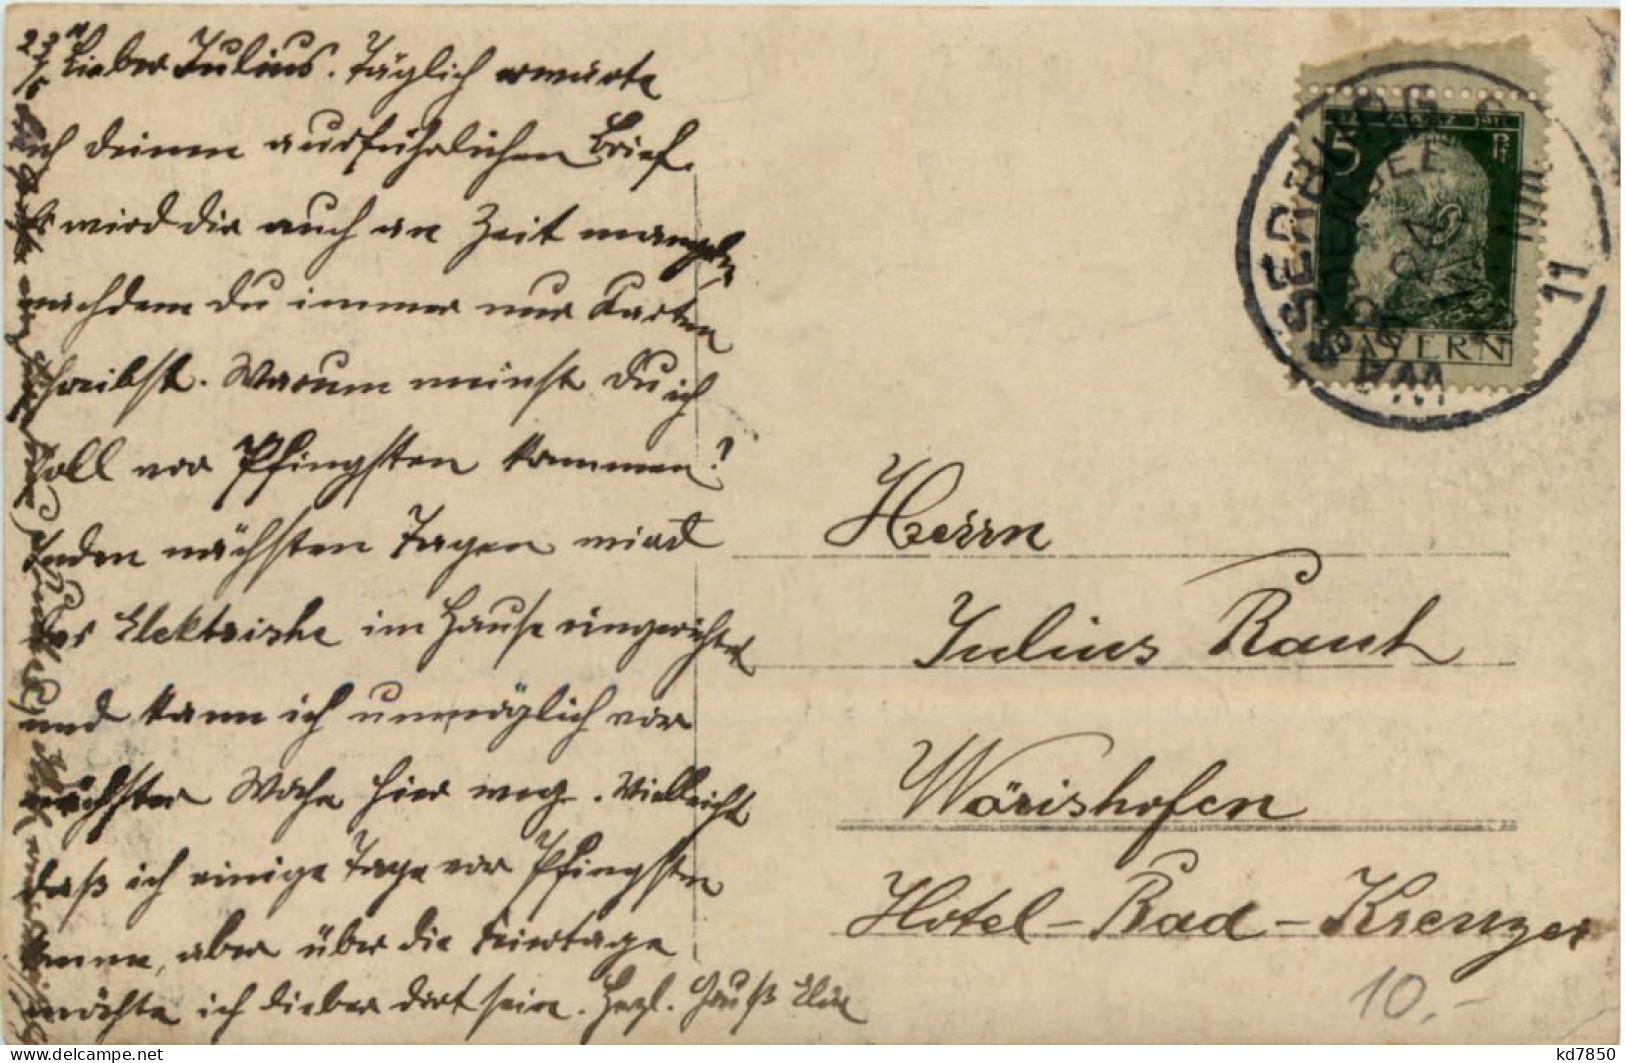 23/5 11
Lieber Julius. Täglich erwarte
ich deinen ausführlichen Brief.
Es wird dir auch an Zeit mangeln,
nachdem Du immer nur Karten
schreibst. Warum meinst Du ich
soll vor Pfingsten kommen?
In den nächsten Tagen wird
das Elektrische im Hause eingerichtet
und kann ich unmöglich vor
nächster Woche hier weg. Vielleicht
daß ich einige Tage vor Pfingsten
komme, aber über die Feiertage
möchte ich lieber dort sein. Herzl. Gruß
5 Pf
BAYERN
WASSERBURG
BODENSEE
24
11
Herrn
Julius Rauh
Wörishofen
Hotel-Bad-Kreuzer
10.-
kd7850